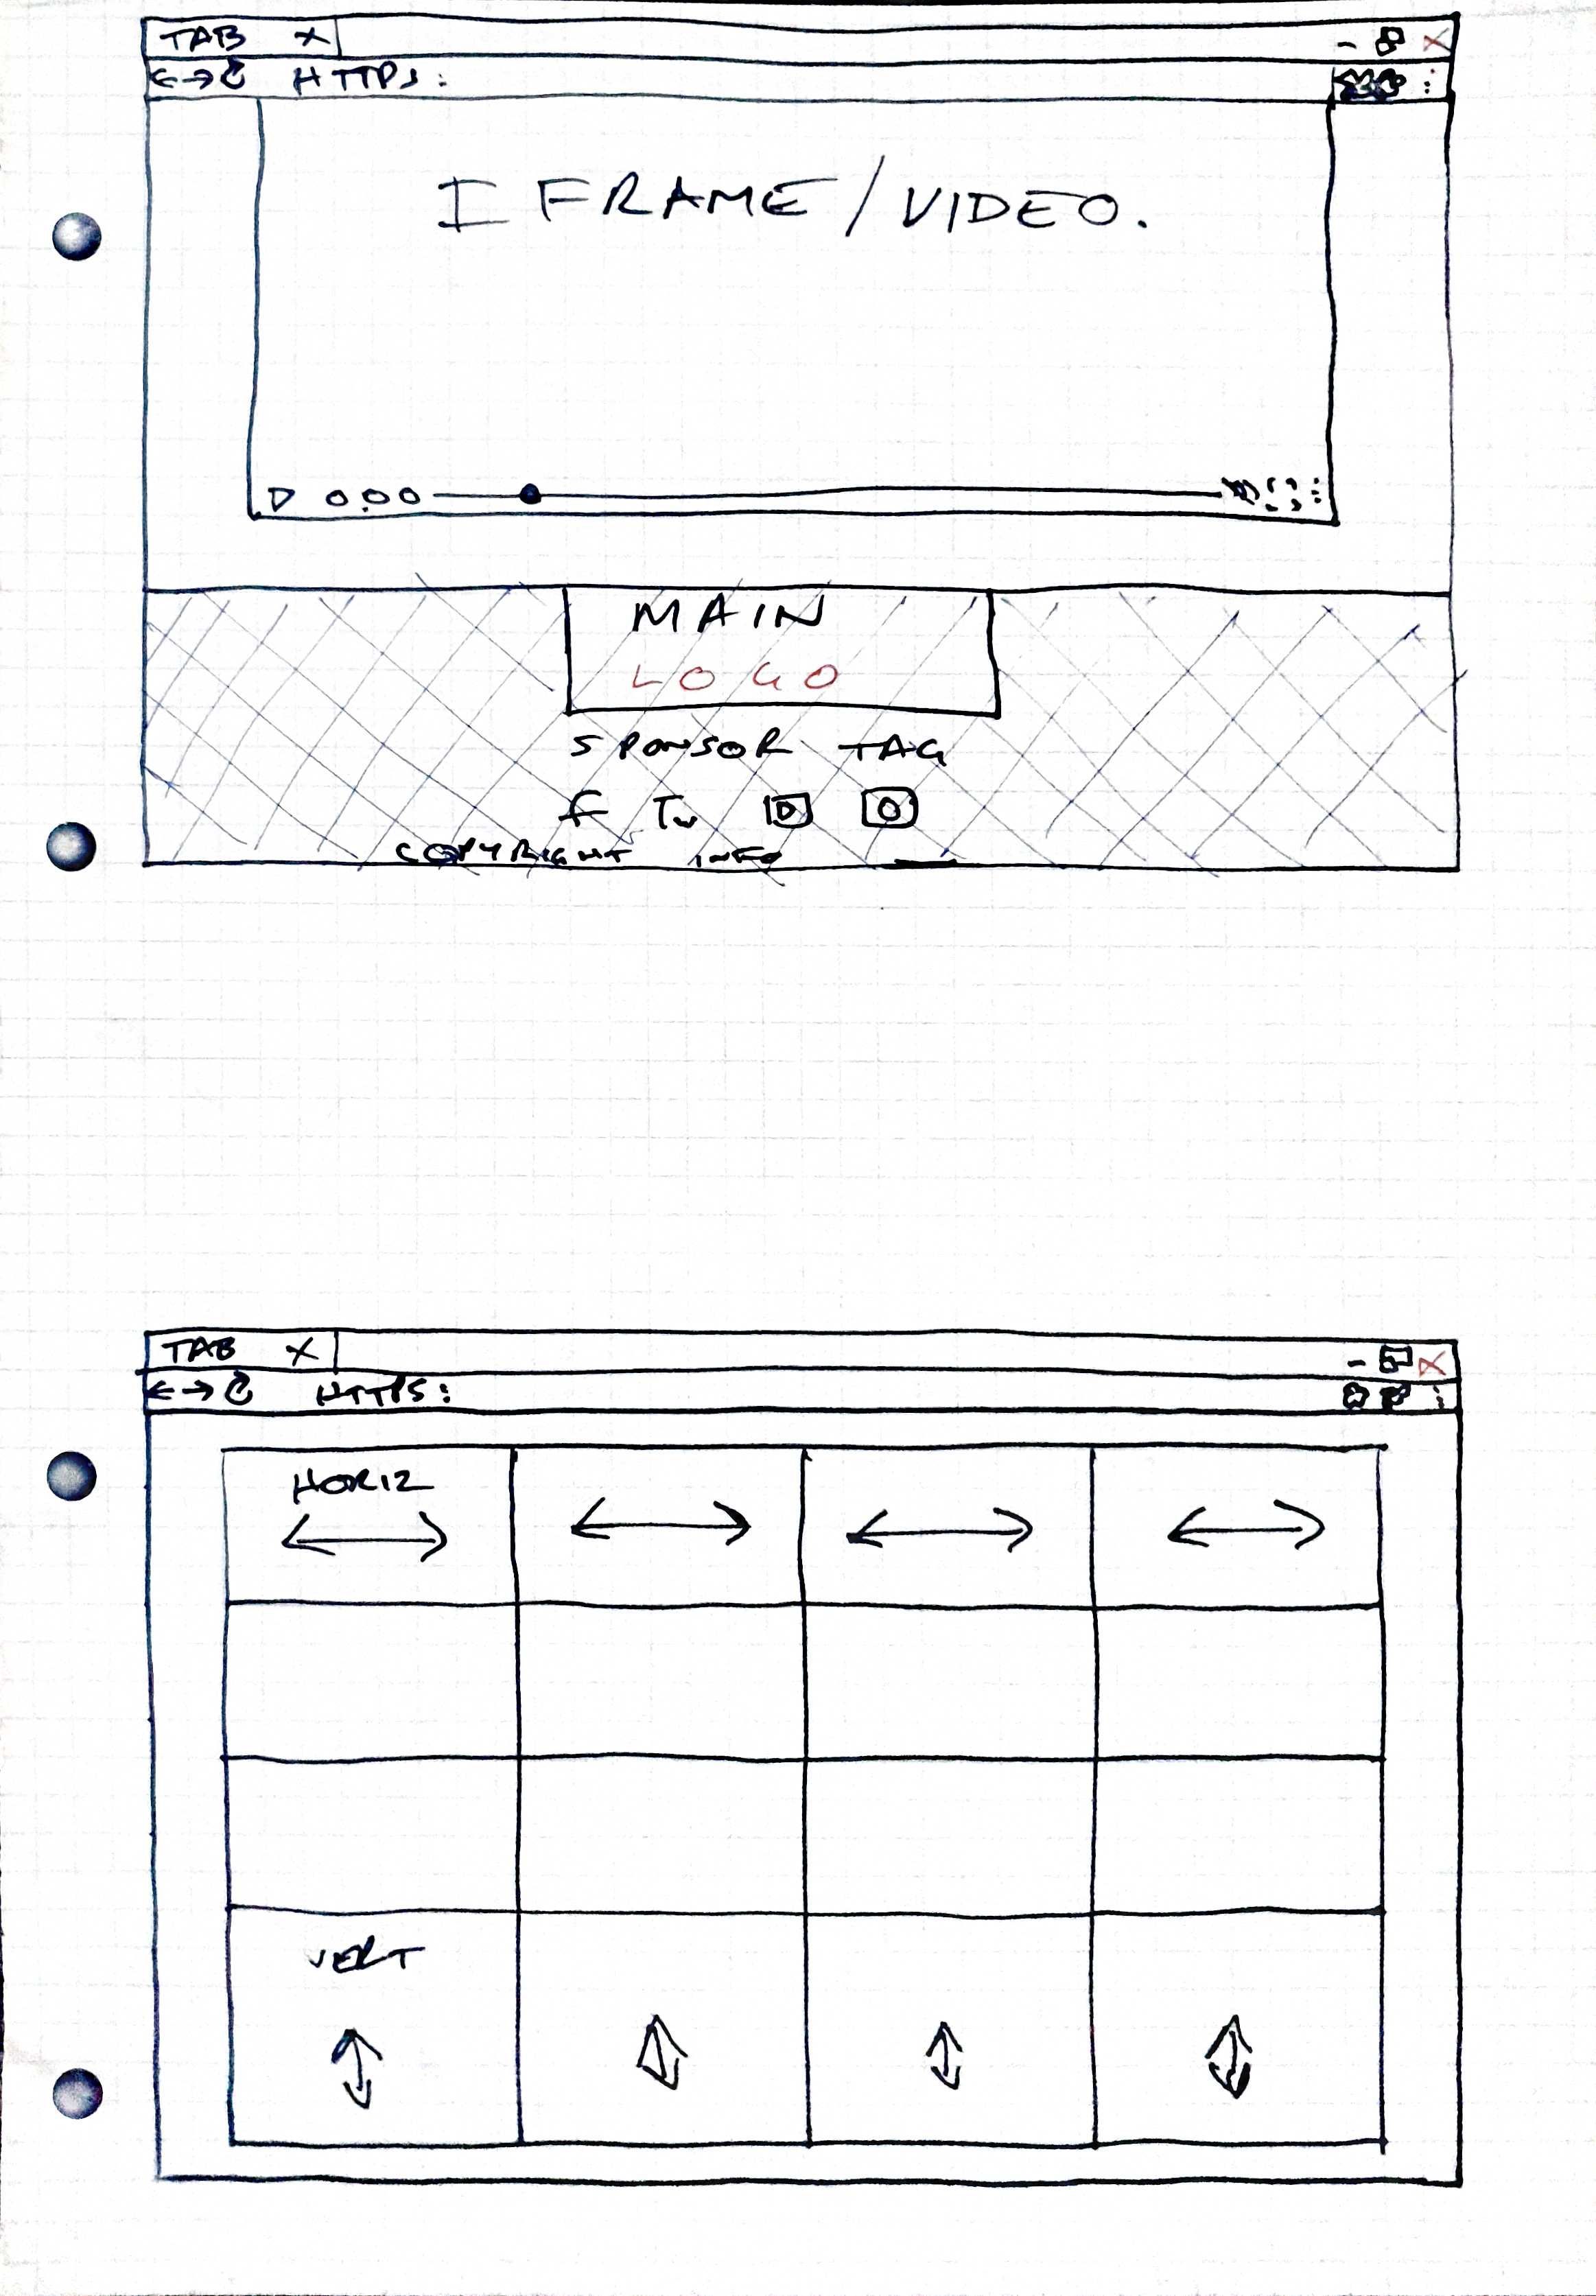 TAB X
HTTPS:
I FRAME/VIDEO.
0.00
MAIN
LOGO
SPONSOR TAG
f Tw
COPYRIGHT INFO
TAB X
HTTPS:
HORIZ
VERT